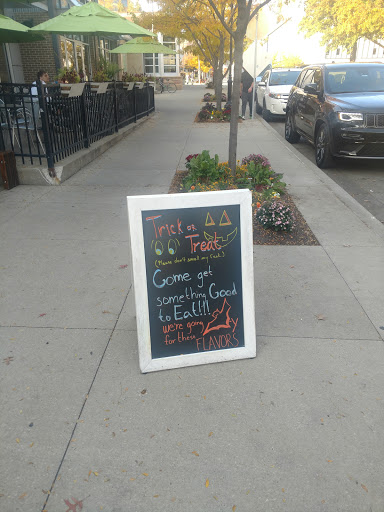 Trick or
Treat
(Please don't smell my feet.)
Come get
something Good
to Eat!!!
we're going
for these
FLAVORS